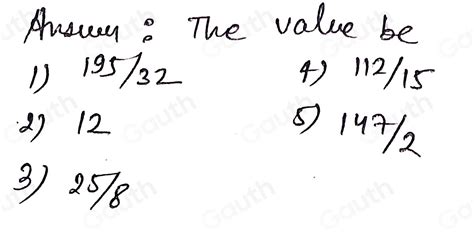 Answer : The value be
1) 195/32
2) 12
3) 25/8
4) 112/15
5) 147/2